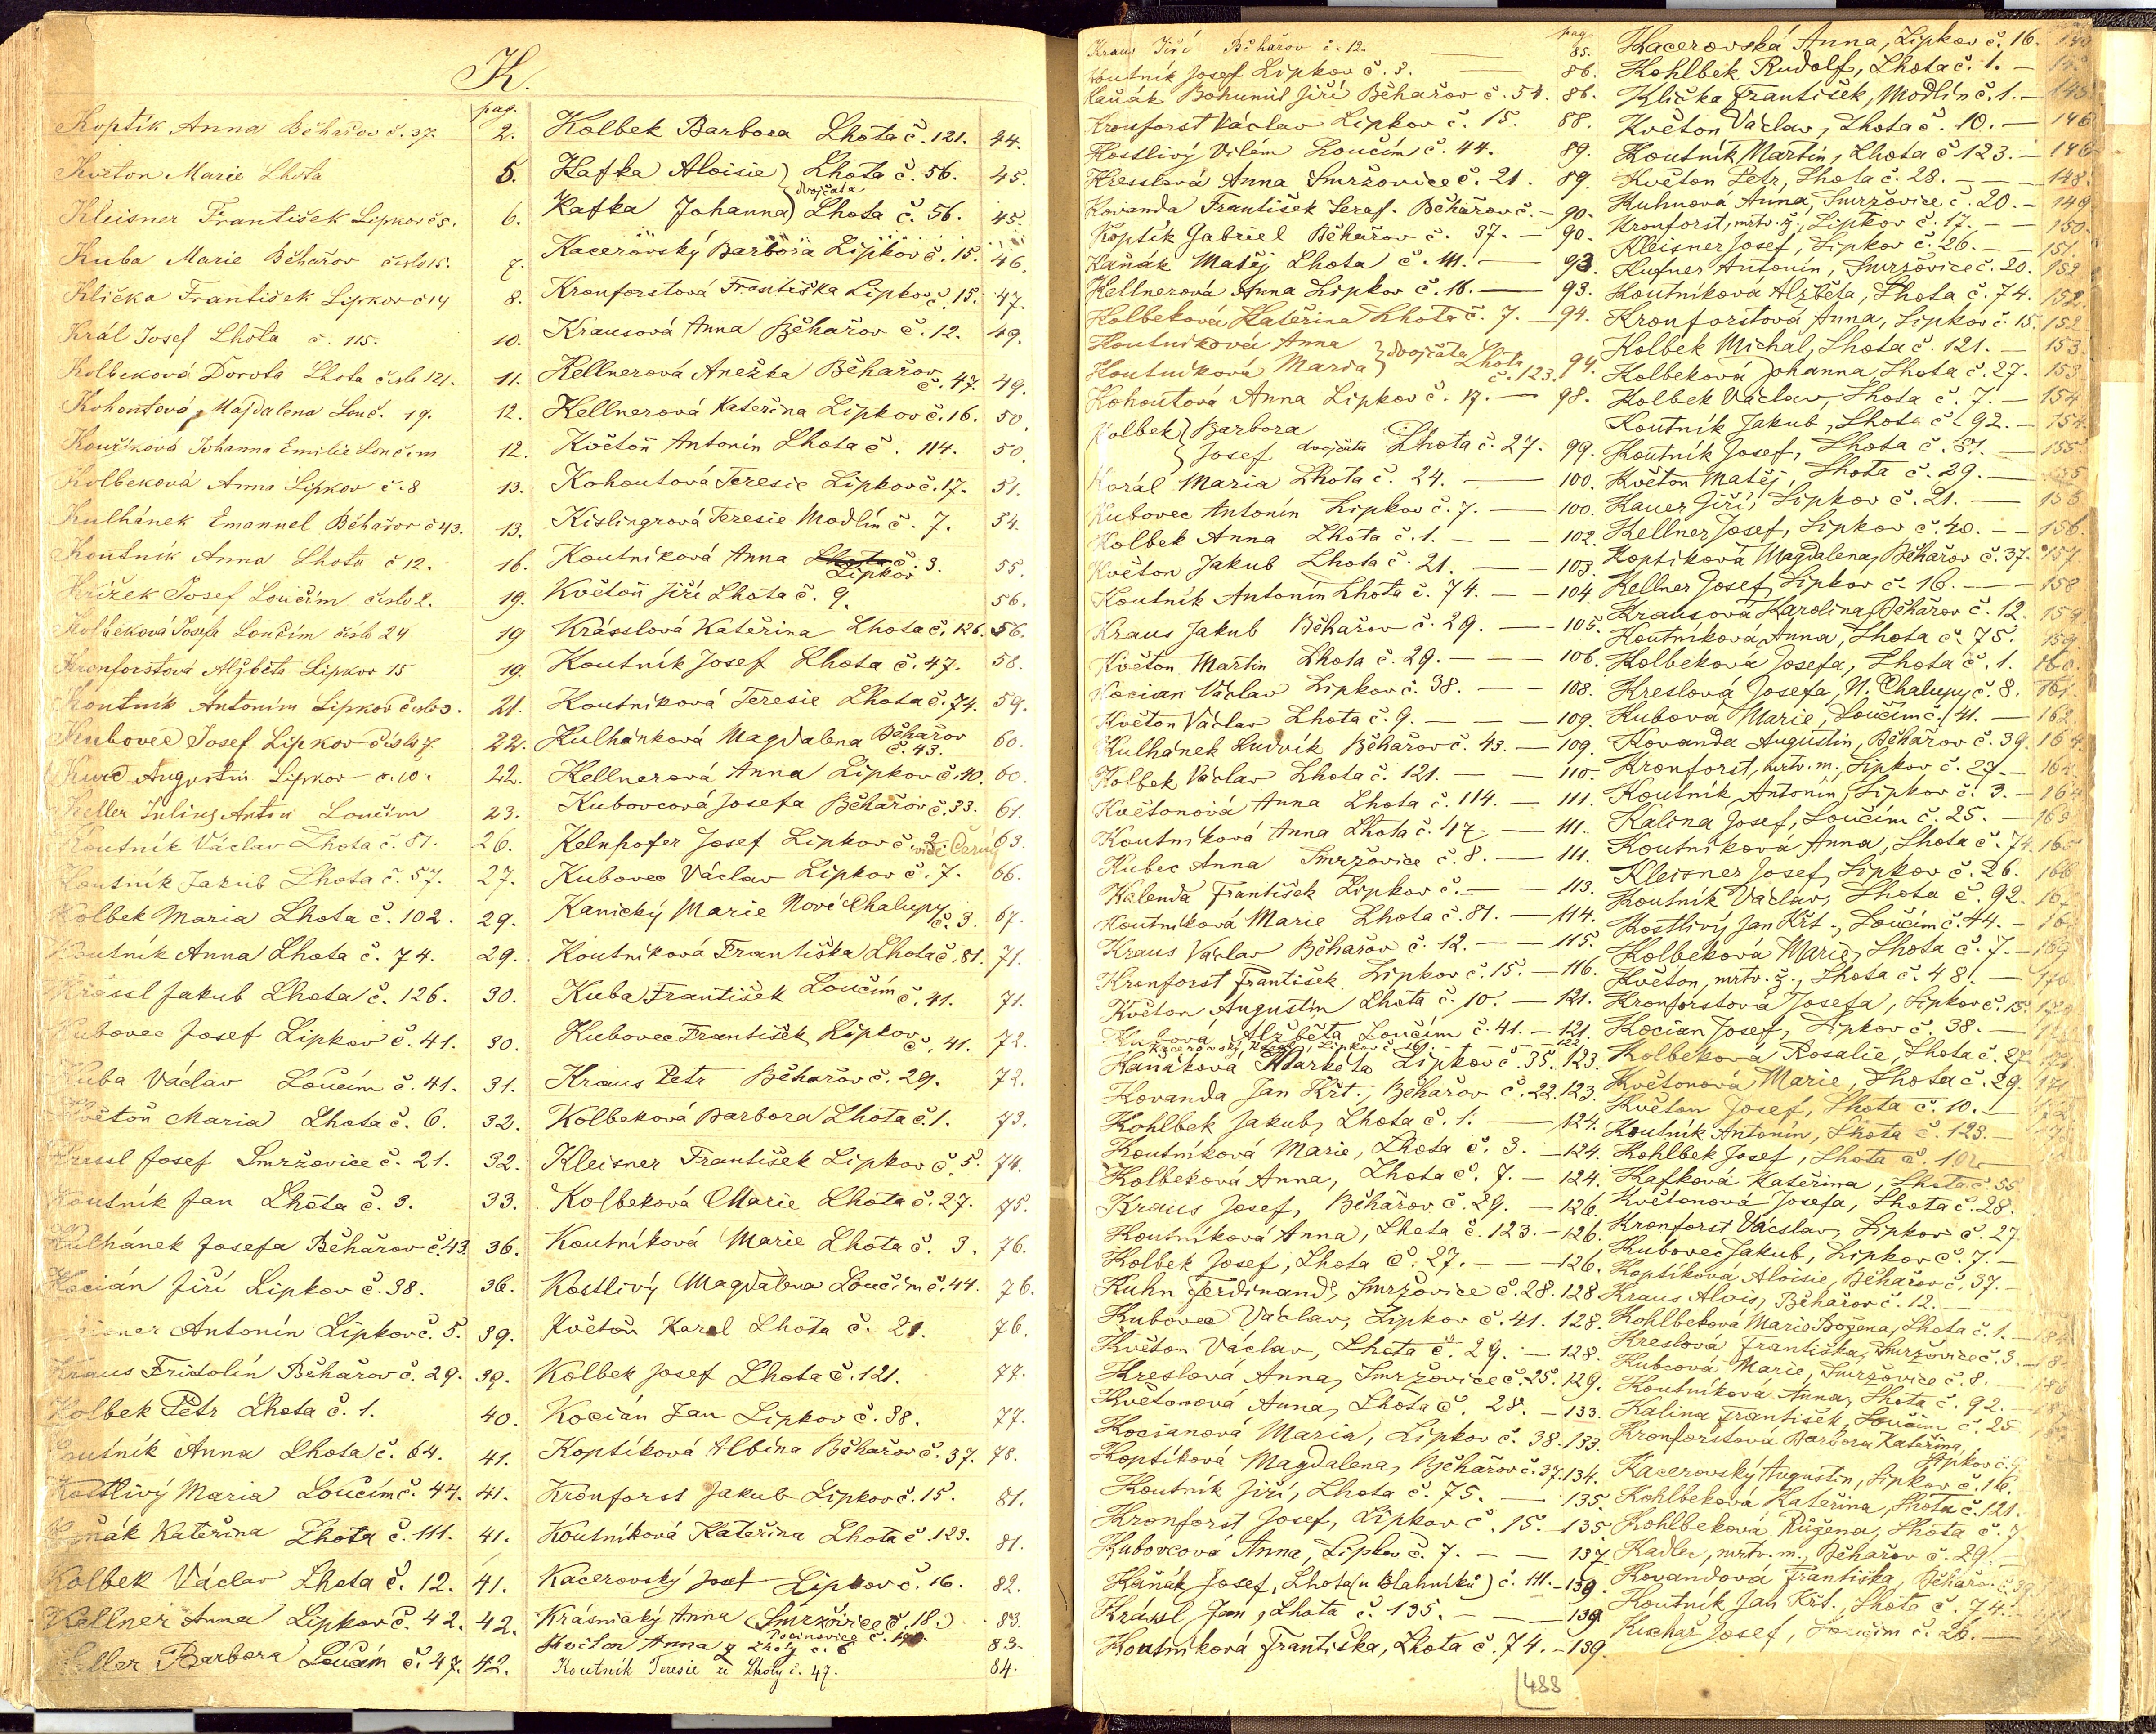 K.
pag.
Koptik Anna Běhařov č. 37. 2.
Květon Marie Lhota 5.
Kleisner František Lipkov č 5. 6.
Kuba Marie Běhařov číslo 15. 7.
Klička František Lipkov č 14 8.
Král Josef Lhota č. 115. 10.
Kolbeková Dorota Lhota číslo 121. 11.
Kohoutová Majdalena Louč. 19. 12.
Johanna Emilie Loučim 12.
Kolbeková Anna Lipkov č. 8 13.
Kulhánek Emanuel Běhařov č 43. 13.
Koutník Anna Lhota č 12. 16.
Křižek Josef Loučim číslo 2. 19.
Kolbeková Josefa Loučim číslo 24 19
Kronforstová Alžběta Lipkov 15 19.
Koutník Antonín Lipkov číslo 3. 21.
Kubovec Josef Lipkov číslo 7 22.
Augustin Lipkov č. 10. 22.
Keller Julius Anton Loučim 23.
Koutník Václav Lhota č. 81. 26.
Koutník Jakub Lhota č. 57. 27.
Kolbek Maria Lhota č. 102. 29.
Koutník Anna Lhota č. 74. 29.
Krássl Jakub Lhota č. 126. 30.
Kubovec Josef Lipkov č. 41. 30.
Kuba Václav Loučím č. 41. 31.
Květoň Maria Lhota č. 6. 32.
Kressl Josef Smržovice č. 21. 32.
Koutník Jan Lhota č. 3. 33.
Kulhánek Josefa Běhařov č. 43. 36.
Kocián Jiří Lipkov č. 38. 36.
Antonín Lipkov č. 5. 39.
Kraus Fridolín Běhařov č. 29. 39.
Kolbek Petr Lhota č. 1. 40.
Koutník Anna Lhota č. 64. 41.
Kostlivý Maria Loučím č. 44. 41.
Kaňák Kateřina Lhota č. 111. 41.
Kolbek Václav Lhota č. 12. 41.
Kellner Anna Lipkov č. 42. 42.
Keller Barbora Loučím č. 47. 42.
Kolbek Barbora Lhota č. 121. 44.
Kafka Aloisie } Lhota č. 56. 45.
dvojčata
Kafka Johanna } Lhota č. 56. 45.
Kacerovský Barbora Lipkov č. 15. 46.
Kronforstová Františka Lipkov č. 15. 47.
Krausová Anna Běhařov č. 12. 49.
Kellnerová Anežka Běhařov č. 47. 49.
Kellnerová Kateřina Lipkov č. 16. 50.
Květoň Antonín Lhota č. 114. 50.
Kohoutová Teresie Lipkov č. 17. 51.
Kislingrová Teresie Modlín č. 7. 54.
Koutníková Anna Lhota č. 3. 55.
Lipkov
Květoň Jiří Lhota č. 9. 56.
Krásslová Kateřina Lhota č. 126. 56.
Koutník Josef Lhota č. 47. 58.
Koutníková Teresie Lhota č. 74. 59.
Kulhánková Magdalena Běhařov č. 43. 60.
Kellnerová Anna Lipkov č. 40. 60.
Kubovcová Josefa Běhařov č. 33. 61.
Kelnhofer Josef Lipkov č. 2. vide Černý 63.
Kubovec Václav Lipkov č. 7. 66.
Kanický Marie Nové Chalupy č. 3. 67.
Koutníková Františka Lhota č. 81. 71.
Kuba František Loučím č. 41. 71.
Kubovec František Lipkov č. 41. 72.
Kraus Petr Běhařov č. 29. 72.
Kolbeková Barbora Lhota č. 1. 73.
Kleisner František Lipkov č. 5. 74.
Kolbeková Marie Lhota č. 27. 75.
Koutníková Marie Lhota č. 3. 76.
Kostlivý Magdalena Loučím č. 44. 76.
Květoň Karel Lhota č. 21. 76.
Kolbek Josef Lhota č. 121. 77.
Kocián Jan Lipkov č. 38. 77.
Koptíková Albína Běhařov č. 37. 78.
Kronforst Jakub Lipkov č. 15. 81.
Koutníková Kateřina Lhota č. 123. 81.
Kacerovský Josef Lipkov č. 16. 82.
Krásnický Anna (Smržovice č. 18.) 83.
Pocinovice č.
Květon Anna z Lhoty č. 6 83.
Koutník Teresie ze Lhoty č. 47. 84.
pag.
Kraus Jiří Běhařov č. 12. 85.
Koutník Josef Lipkov č. 3. — 86.
Kaňák Bohumil Jiří Běhařov č. 54. 86.
Kronforst Václav Lipkov č. 15. 88.
Kostlivý Vilém Loučím č. 44. 89.
Kresslová Anna Smržovice č. 21. 89.
Kovanda František Seraf. Běhařov č. — 90.
Koptík Gabriel Běhařov č. 37. — 90.
Kaňák Matěj Lhota č. 111. — 93.
Kellnerová Anna Lipkov č. 16. — 93.
Kolbeková Kateřina Lhota č. 7. — 94.
Koutníková Anna
Koutníková Maria } dvojčata Lhota č. 123. 94.
Kohoutová Anna Lipkov č. 17. — 98.
Kolbek } Barbora
Josef dvojčata Lhota č. 27. 99.
Korál Maria Lhota č. 24. — 100.
Kubovec Antonín Lipkov č. 7. — 100.
Kolbek Anna Lhota č. 1. — 102.
Květon Jakub Lhota č. 21. — 103.
Koutník Antonín Lhota č. 74. — 104.
Kraus Jakub Běhařov č. 29. — 105.
Květon Martin Lhota č. 29. — 106.
Kocian Václav Lipkov č. 38. — 108.
Květon Václav Lhota č. 9. — 109.
Kulhánek Ludvík Běhařov č. 43. — 109.
Kolbek Václav Lhota č. 121. — 110.
Květonová Anna Lhota č. 114. — 111.
Koutníková Anna Lhota č. 47. — 111.
Kubec Anna Smržovice č. 8. — 111.
Kalenda František Lipkov č. — 113.
Koutníková Marie Lhota č. 81. — 114.
Kraus Václav Běhařov č. 12. — 115.
Kronforst František Lipkov č. 15. — 116.
Květon Augustin Lhota č. 10. — 121.
Kubová Alžběta Loučím č. 41. — 121.
Kacerovský Karel, Lipkov č. 16. — 122
Kaňáková Markéta Lipkov č. 35. 123.
Kovanda Jan Křt., Běhařov č. 22. 123.
Kohlbek Jakub, Lhota č. 1. — 124.
Koutníková Marie, Lhota č. 3. — 124.
Kolbeková Anna, Lhota č. 7. — 124.
Kraus Josef, Běhařov č. 29. — 126.
Koutníková Anna, Lhota č. 123. — 126.
Kolbek Josef, Lhota č. 27. — 126.
Kuhn Ferdinand, Smržovice č. 28. 128
Kubovec Václav, Lipkov č. 41. 128.
Květon Václav, Lhota č. 29. — 128.
Kreslová Anna, Smržovice č. 25. 129.
Květonová Anna, Lhota č. 28. — 133.
Kocianová Maria, Lipkov č. 38. 133.
Koptíková Magdalena, Běhařov č. 37. 134.
Koutník Jiří, Lhota č. 75. — 135.
Kronforst Josef, Lipkov č. 15. — 135.
Kubovcová Anna, Lipkov č. 7. — 137
Kaňák Josef, Lhota (u Blahníků) č. 111. — 139.
Krássl Jan, Lhota č. 135. — 139.
Koutníková Františka, Lhota č. 74. — 139.
Kacerovská Anna, Lipkov č. 16.
Kohlbek Rudolf, Lhota č. 1. —
Klička František, Modlín č. 1. — 145
Květon Václav, Lhota č. 10. — 146
Koutník Martin, Lhota č 123. — 146
Květon Petr, Lhota č. 28. — 148.
Kuhnová Anna, Smržovice č. 20. — 149
Kronforst, mrtv. ž., Lipkov č. 17. — 150.
Kleisner Josef, Lipkov č. 26. — 151.
Kufner Antonín, Smržovice č. 20. 152
Koutníková Alžběta, Lhota č. 74. 152.
Kronforstová Anna, Lipkov č. 15. 152
Kolbek Michal, Lhota č. 121. — 153.
Kolbeková Johanna, Lhota č. 27. 153
Kolbek Václav, Lhota č. 7. — 154
Koutník Jakub, Lhota č. 92. — 154.
Koutník Josef, Lhota č. 81. — 155
Květon Matěj, Lhota č. 29. — 155
Kauer Jiří, Lipkov č. 21. — 156
Kellner Josef, Lipkov č. 40. — 156.
Koptíková Magdalena, Běhařov č. 37. 157
Kellner Josef, Lipkov č. 16. — 158
Krausová Karolina, Běhařov č. 12. 159
Koutníková Anna, Lhota č. 75. 159.
Kolbeková Josefa, Lhota č. 1. 160.
Kreslová Josefa, N. Chalupy č. 8. 161.
Kubová Marie, Loučím č. 41. — 162
Kovanda Augustin, Běhařov č. 39. 164
Kronforst, mrtv. m., Lipkov č. 23. — 164
Koutník Antonín, Lipkov č. 3. — 164
Kalina Josef, Loučím č. 25. — 165
Koutníková Anna, Lhota č. 74. 165
Kleisner Josef, Lipkov č. 26. 166
Koutník Václav, Lhota č. 92. 167
Kostlivý Jan Křt., Loučím č. 44. —
Kolbeková Marie, Lhota č. 7. — 169
Květon, mrtv. ž., Lhota č. 48. — 170
Kronforstová Josefa, Lipkov č. 15.
Kocian Josef, Lipkov č. 38. —
Kolbeková Rosalie, Lhota č. 27.
Květonová Marie, Lhota č. 29.
Květon Josef, Lhota č. 10. —
Koutník Antonín, Lhota č. 123.
Kohlbek Josef, Lhota č. 102
Kafková Kateřina, Lhota č. 55
Květonová Josefa, Lhota č. 28.
Kronforst Václav, Lipkov č. 27
Kubovec Jakub, Lipkov č. 7. —
Koptíková Aloisie, Běhařov č. 37. —
Kraus Alois, Běhařov č. 12.
Kohlbeková Marie Božena, Lhota č. 1. —
Kreslová Františka, Smržovice č. 3. —
Kubcová Marie, Smržovice č. 8. —
Koutníková Anna, Lhota č. 92. —
Kalina František, Loučím č. 25
Kronforstová Barbora Kateřina, Lipkov č.
Kacerovský Augustin, Lipkov č. 16.
Kohlbeková Kateřina, Lhota č. 121.
Kohlbeková Růžena, Lhota č. 7
Kadlec, mrtv. m., Běhařov č. 29. —
Kovandová Františka, Běhařov č. 39
Koutník Jan Křt., Lhota č. 74.
Kuchař Josef, Loučím č. 26. —
488